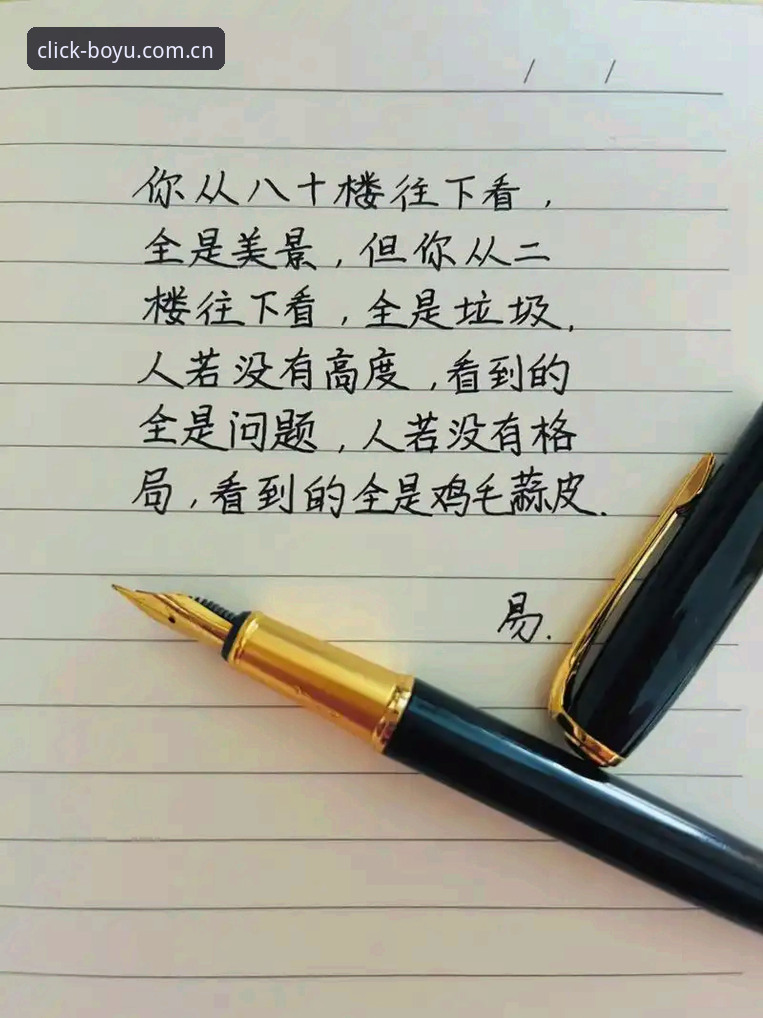 click-boyu.com.cn
/ /
你从八十楼往下看，
全是美景，但你从二
楼往下看，全是垃圾.
人若没有高度，看到的
全是问题，人若没有格
局，看到的全是鸡毛蒜皮.
易.